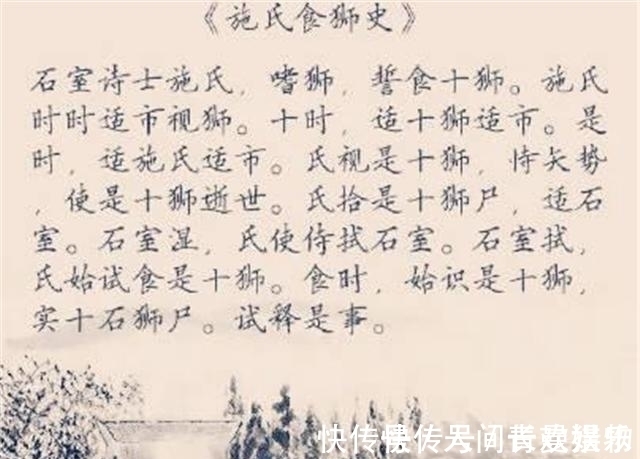 《施氏食狮史》
石室诗士施氏，嗜狮，誓食十狮。施氏
时时适市视狮。十时，适十狮适市。是
时，适施氏适市。氏视是十狮，恃矢势
，使是十狮逝世。氏拾是十狮尸，适石
室。石室湿，氏使侍拭石室。石室拭，
氏始试食是十狮。食时，始识是十狮，
实十石狮尸。试释是事。
快传